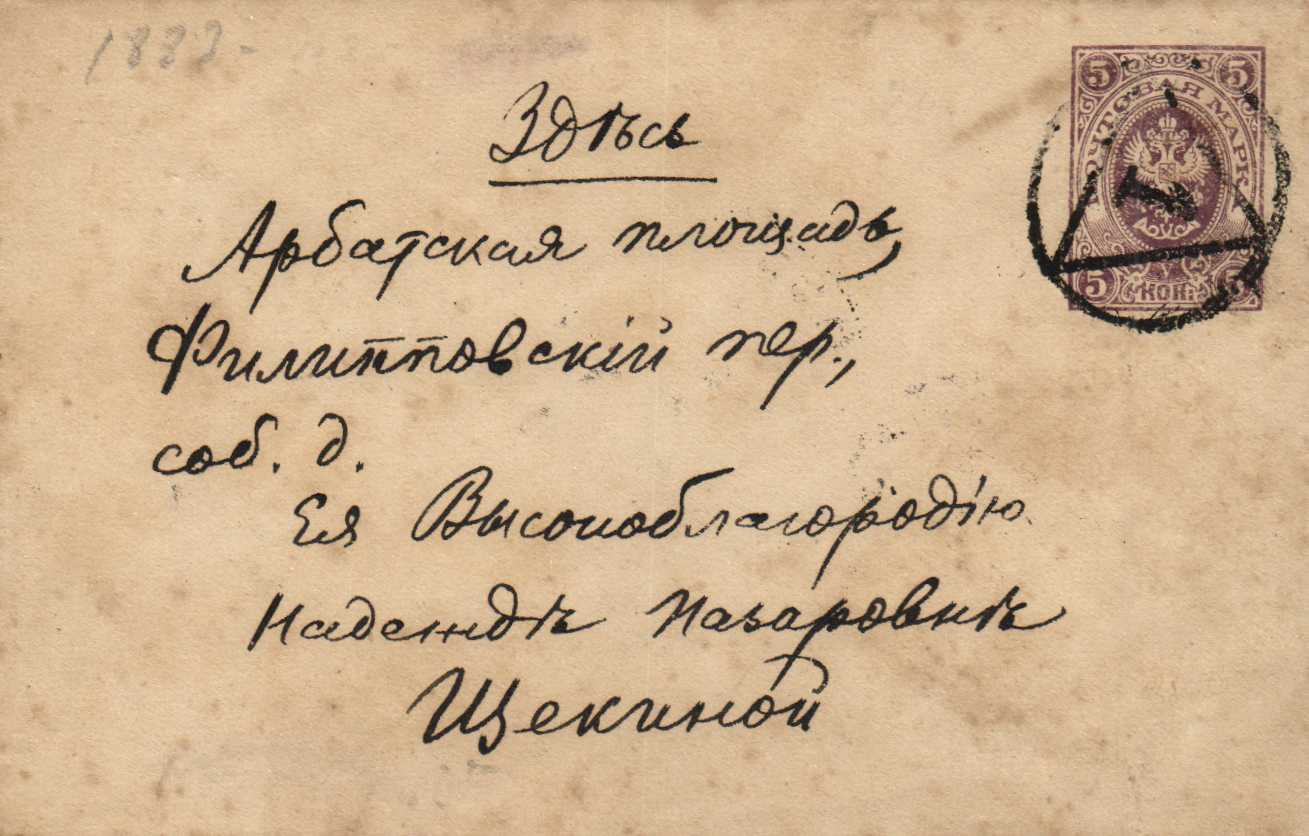 1883-
Здѣсь
5 ПОЧТОВАЯ МАРКА 5
1
5 КОП. 5
Арбатская площадь,
Филипповскій пер.,
соб. д.
Ея Высокоблагородію
Надеждѣ Назаровнѣ
Щекиной